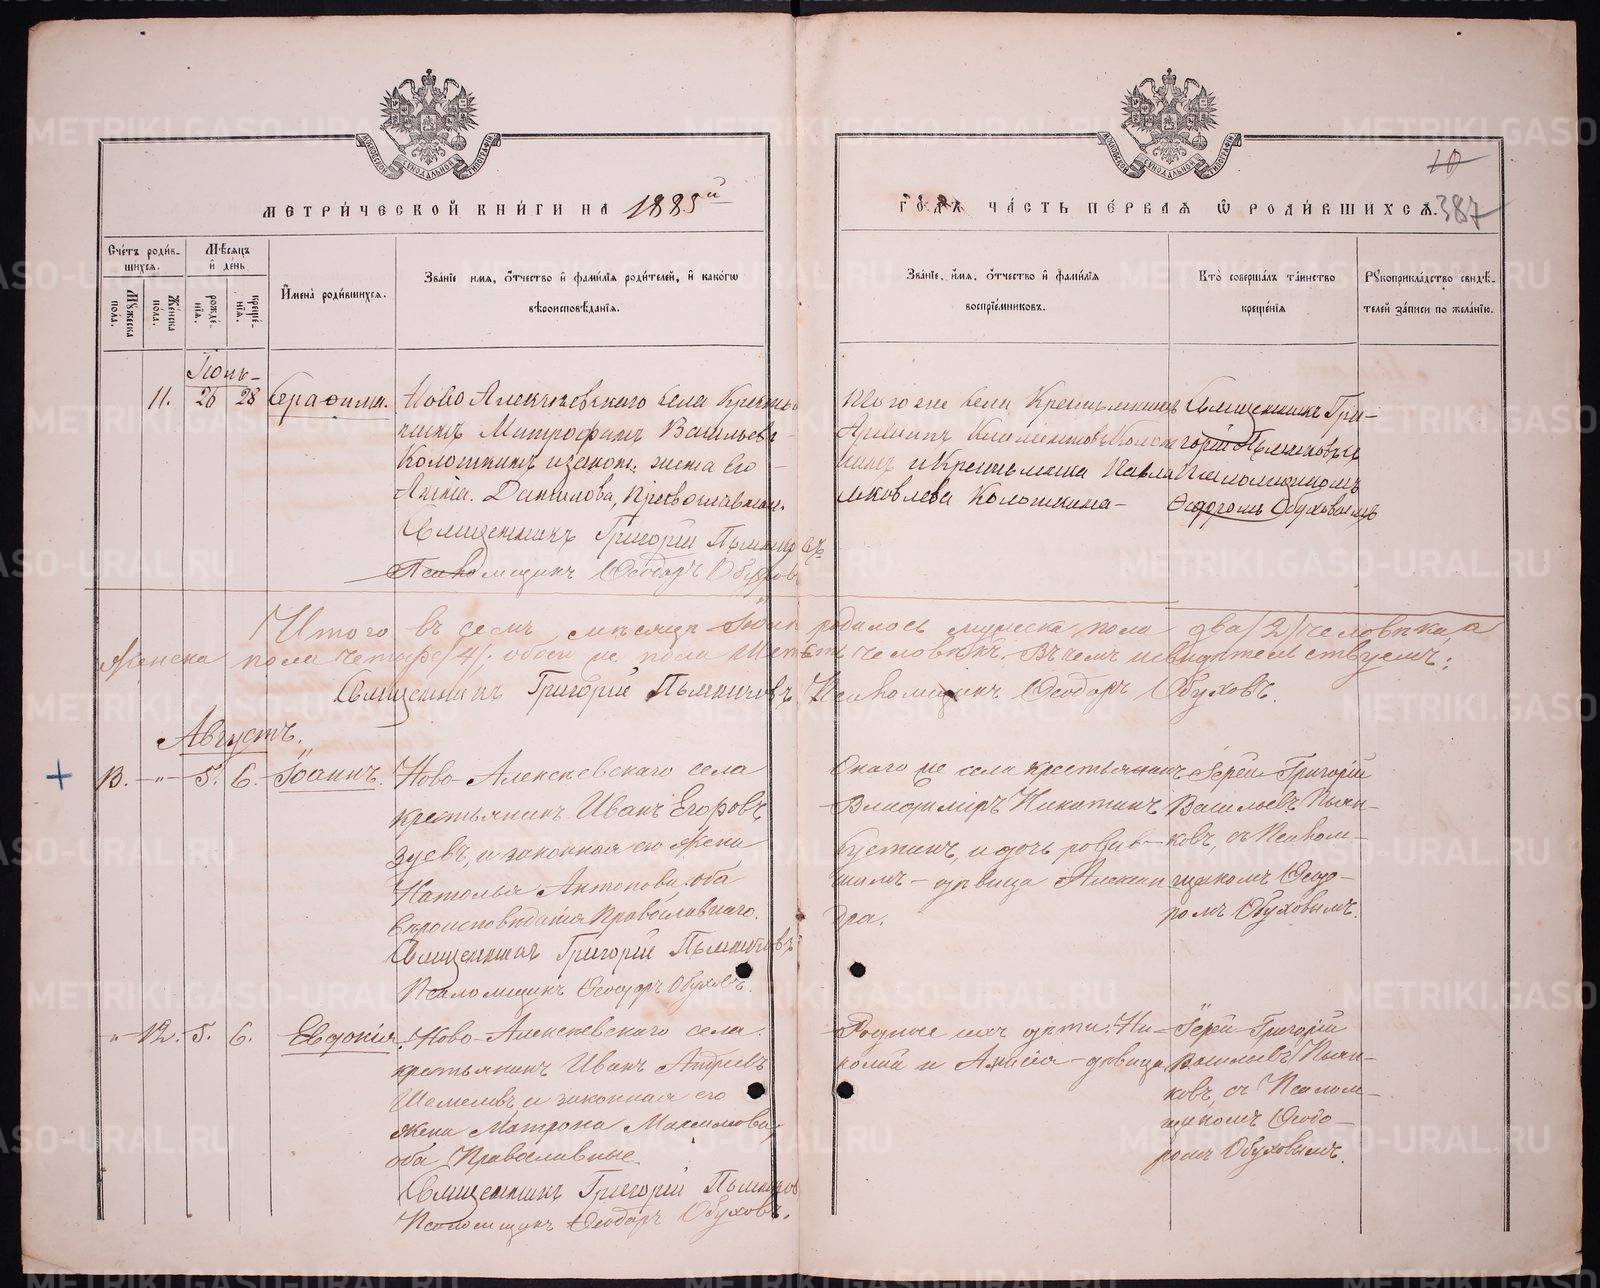 МЕТРИ́ЧЕСКОЙ КНИ́ГИ НА 1885й
ГОДЪ ЧА́СТЬ ПЕ́РВАЯ Ѿ РОДИ́ВШИХСѦ.
10
387
Сче́тъ роди́в-
шихсѧ.
Мꙋжеска
пола̀.
Же́нска
по́ла.
Мѣ́сѧцъ
и҆ де́нь
рожде́-
нїѧ.
креще́-
нїѧ.
И҆мена̀ роди́вшихсѧ.
Зва́нїе имѧ, ѻ҆́тчество и҆ фамі́лїѧ роди́телей, и҆ како́гѡ
вѣроисповѣ́данїѧ.
Зва́нїе, и҆мѧ, ѻ҆́тчество и҆ фамі́лїѧ
воспрїе́мниковъ.
Кто̀ соверша́лъ та́инство
креще́нїѧ
Рꙋкоприкла́дство свидѣ́-
телей за́писи по жела́нїю.
11. 26 28 Серафима.
Ново Алексѣевскаго села Кресть
Митрофанъ Васильевъ
Колошкинъ и закон. жена Его
Анна Данилова, Православнаг.
Священникъ Григорій Пьянковъ
Псаломщикъ Ѳеодоръ Обуховъ
Того же села Крестьянинъ
Климентовъ
и Крестьянка Павла
Яковлева Колошкина
Священникъ Гри-
горій Пьянковъ съ
Псаломщикомъ
Ѳеодоромъ Обуховымъ
Итого въ семъ мѣсяцѣ родилось мужеска пола два /2/ человѣка, а
женска пола четыре /4/; обоего же пола шесть человѣкъ. Въ чемъ и свидѣтельствуемъ:
Священникъ Григорій Пьянковъ Псаломщикъ Ѳеодоръ Обуховъ.
Августъ.
13. - " - 5. 6. Іоаннъ.
Ново-Алексѣевскаго села
крестьянинъ Иванъ Егоровъ
Зуевъ, и законная его жена
Наталья Антонова. оба
вѣроисповѣданія Православнаго.
Священникъ Григорій Пьянковъ
Псаломщикъ Ѳеодоръ Обуховъ.
Онаго же села крестьянинъ
Владиміръ Никитинъ
и дочь родив-
шихъ - дѣвица Алексан
дра.
Іерей Григорій
Васильевъ Пьян-
ковъ, съ Псалом-
щикомъ Ѳеодо-
ромъ Обуховымъ.
" 12. 5. 6. Евдокія.
Ново-Алексѣевскаго села
крестьянинъ Иванъ Андреевъ
Шемелевъ, и законная его
жена Матрона Максимова,
оба Православные.
Священникъ Григорій Пьянковъ
Псаломщикъ Ѳеодоръ Обуховъ.
Родные ихъ дѣти: Ни-
колай и Анисія - дѣвица
Іерей Григорій
Васильевъ Пьян-
ковъ, съ Псалом-
щикомъ Ѳеодо-
ромъ Обуховымъ.
METRIKI.GASO-URAL.RU